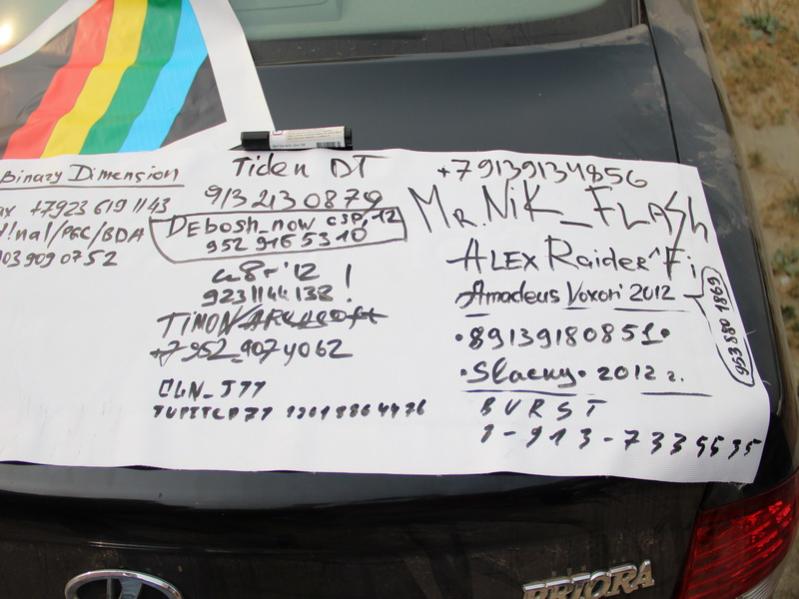 Binary Dimension
+7923 619 1143
/PGC/BDA
903 909 0752
Tiden DT
913 213 0879
DEbosh_now CSP,12
952 9165310
'12 !
923 1144 138
TIMON
+7 952_907 4062
CLN_J77
+79139134856
MR.NiK_FLASh
ALEX Raider^Fi
Amadeus Voxori 2012
953 880 1869
•89139180851•
•Slacky• 2012 г.
BURST
8-913-7335535
PRIORA